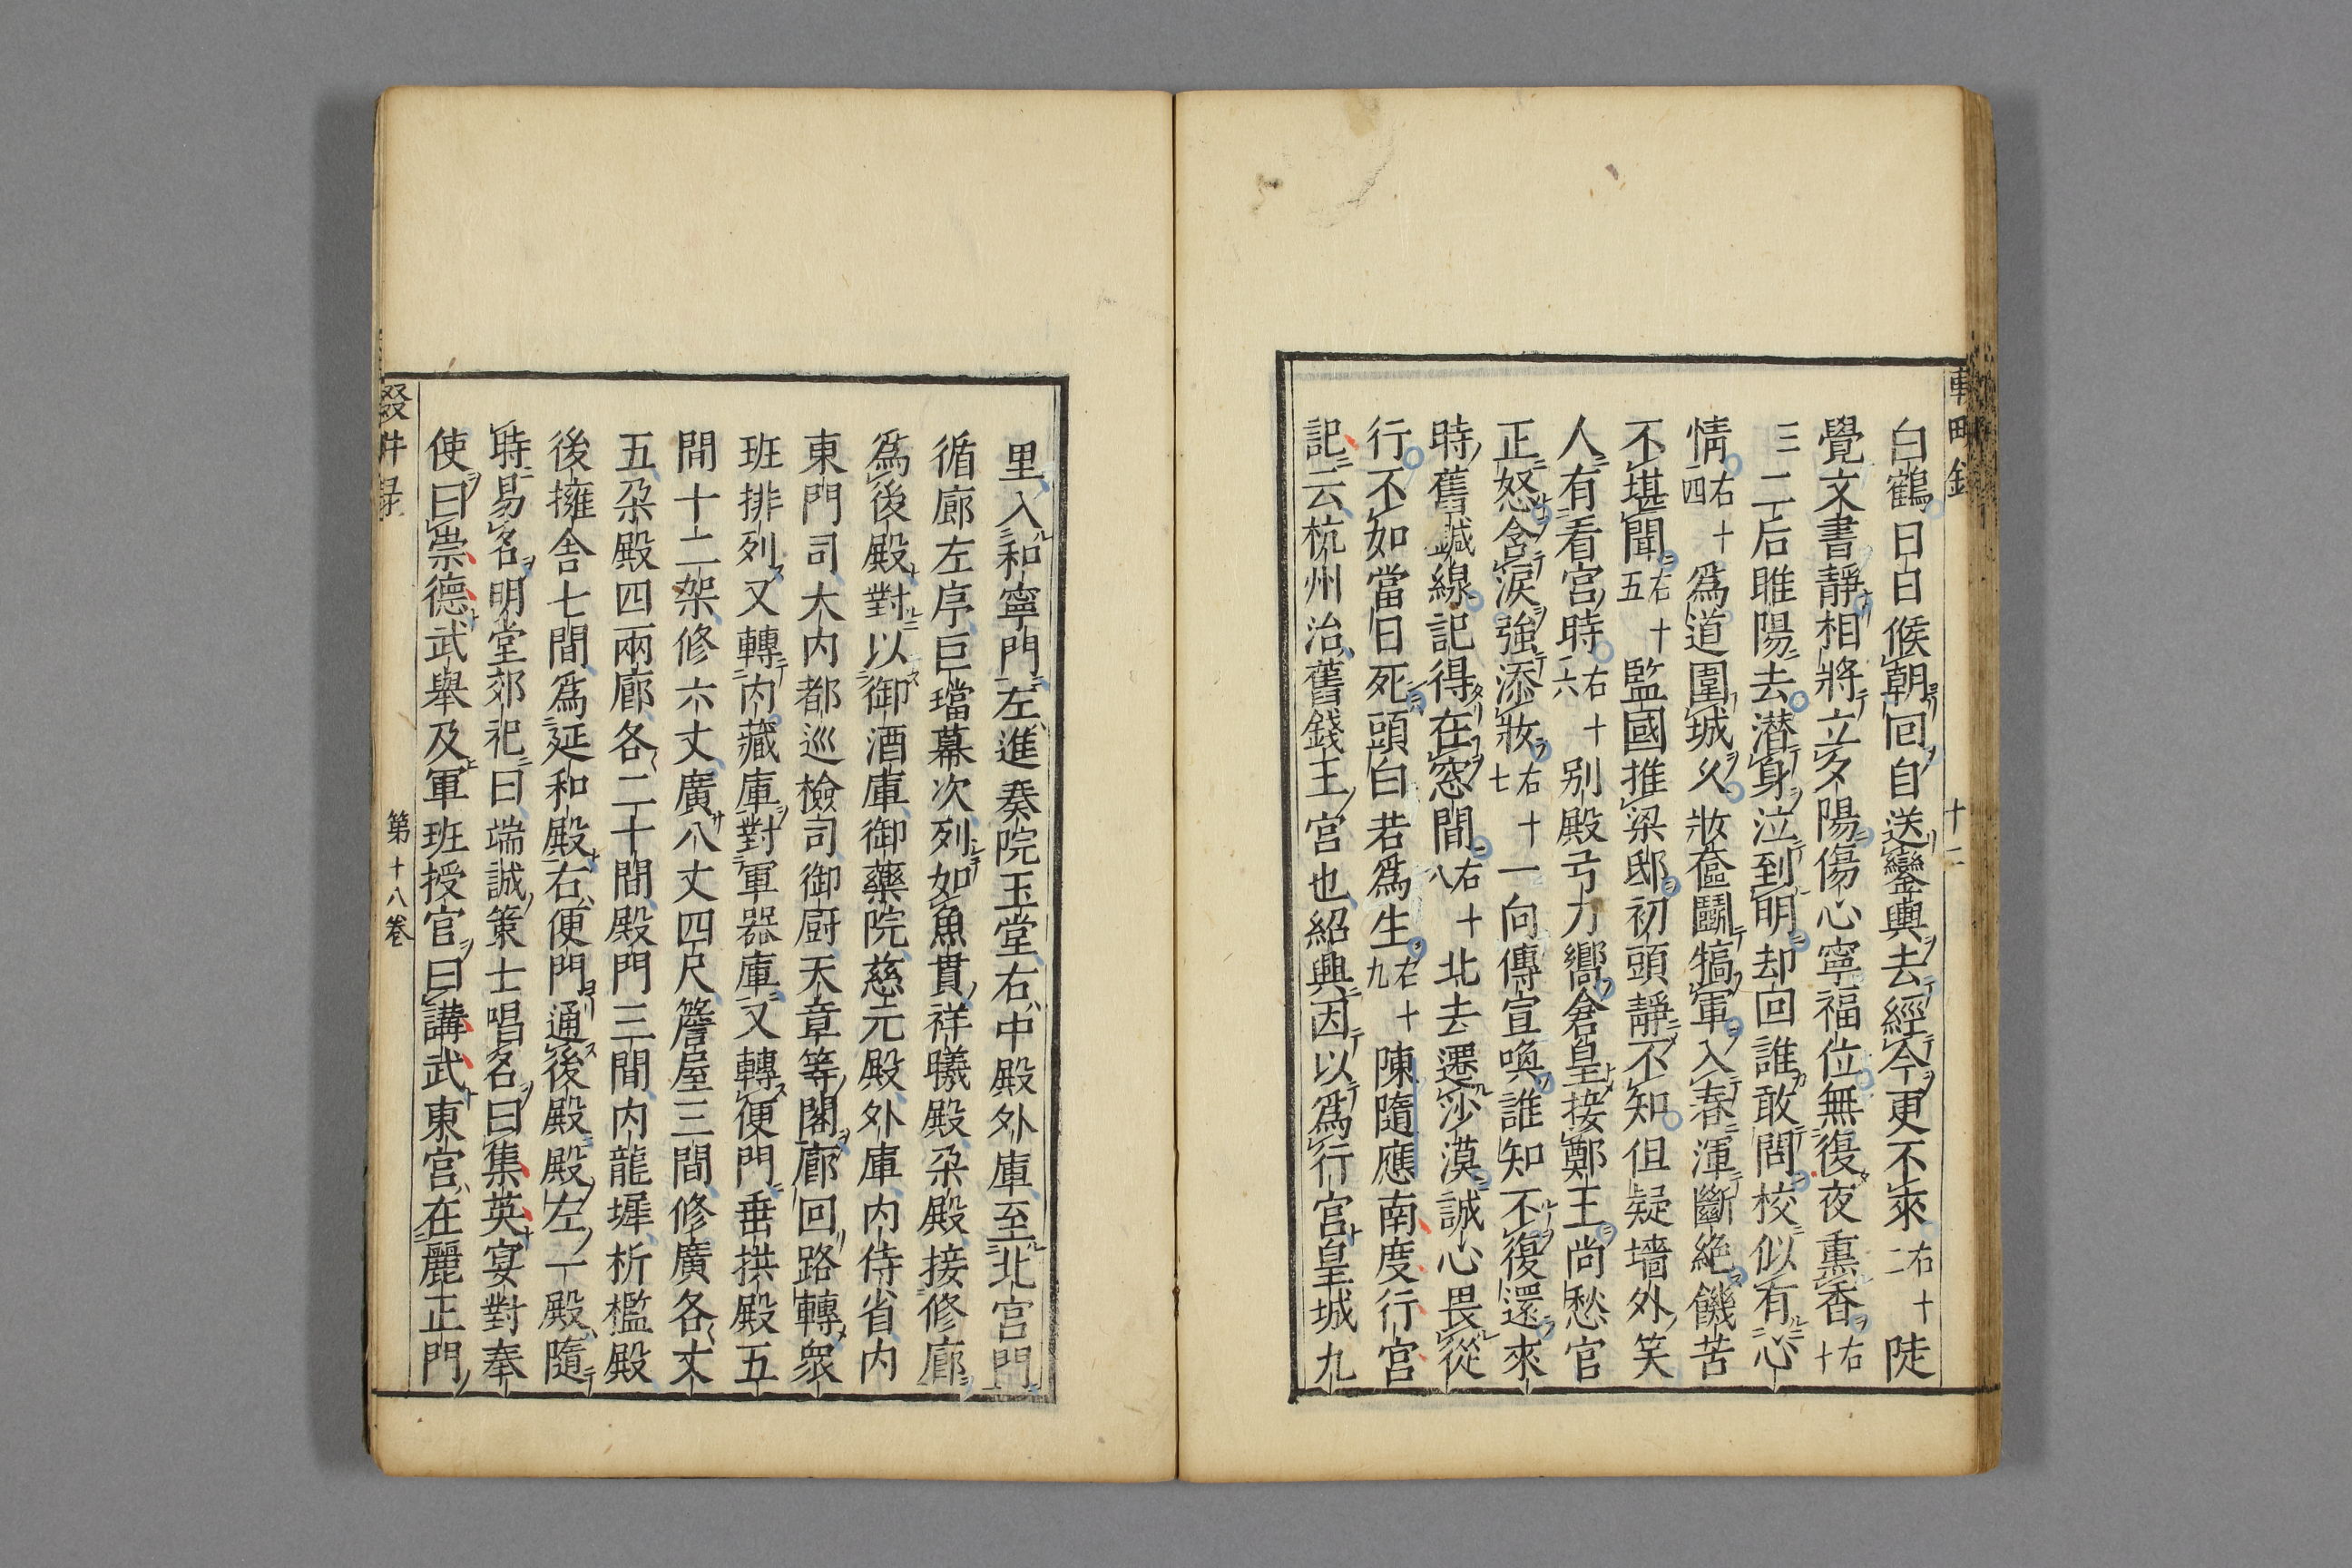 白鶴日日候朝回自送鑾輿去經今更不來右十二陡
覺文書靜相將立夕陽傷心寧福位無復夜熏香右十
三二后睢陽去潜身泣到明却回誰敢問校似有心
情右十四爲道圍城久妝奩鬭犒軍入春渾斷絶饑苦
不堪聞右十五監國推梁邸初頭靜不知但疑墻外笑
人有看宮時右十六別殿弓刀嚮倉皇接鄭王尚愁官
正怒含淚強添妝右十七一向傳宣喚誰知不復還來
時舊鍼線記得在窓間右十八北去遷沙漠誠心畏從
行不如當日死頭白若爲生右十九陳隨應南度行宮
記云杭州治舊錢王宮也紹興因以爲行宮皇城九
里入和寧門左進奏院玉堂右中殿外庫至北宮門
循廊左序巨璫幕次列如魚貫祥曦殿朵殿接修廊
爲後殿對以御酒庫御藥院慈元殿外庫內侍省內
東門司大內都巡檢司御厨天章等閣廊回路轉衆
班排列又轉內藏庫對軍器庫又轉便門垂拱殿五
間十二架修六丈廣八丈四尺簷屋三間修廣各丈
五朵殿四兩廊各二十間殿門三間內龍墀折檻殿
後擁舍七間爲延和殿右便門通後殿殿左一殿隨
時易名明堂郊祀曰端誠策士唱名曰集英宴對奉
使曰崇德武舉及軍班授官曰講武東宮在麗正門
十二
第十八卷